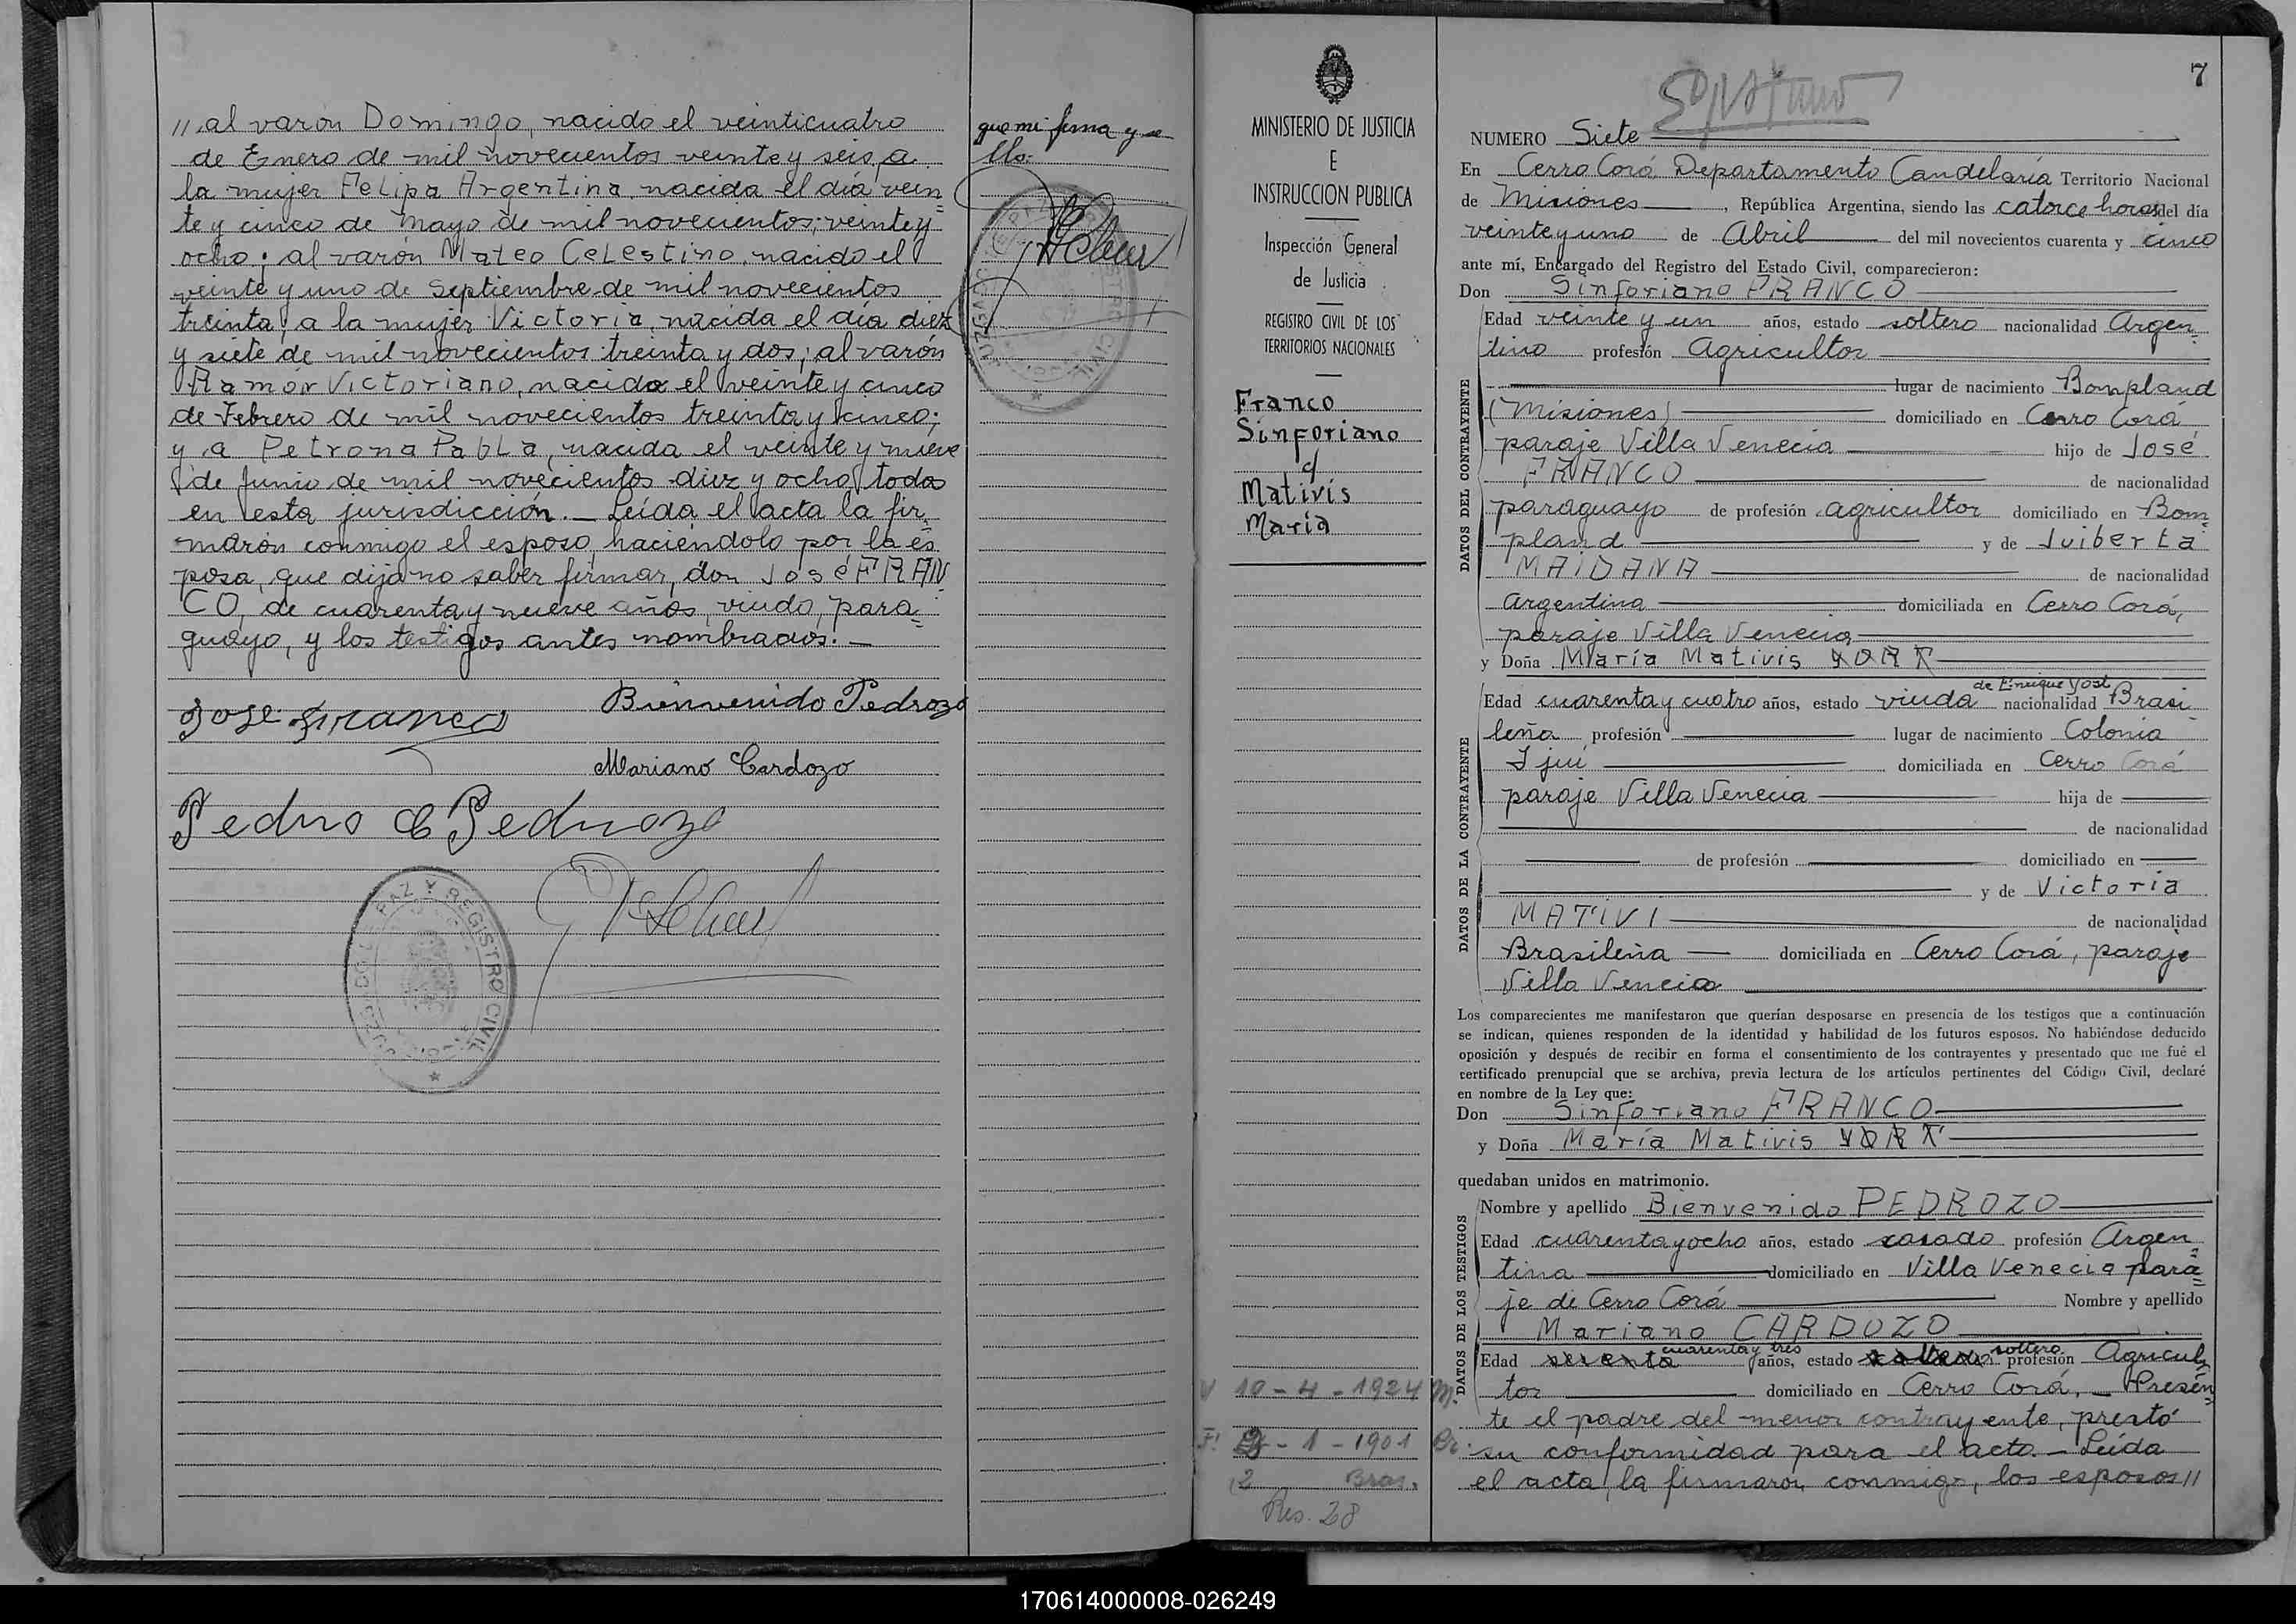 // al varón Domingo, nacido el veinticuatro
de Enero de mil novecientos veinte y seis, a
la mujer Felipa Argentina nacida el día vein
te y cinco de Mayo de mil novecientos veinte y
ocho; al varón Mateo Celestino, nacido el
veinte y uno de Septiembre de mil novecientos
treinta; a la mujer Victoria, nacida el día diez
y siete de mil novecientos treinta y dos; al varón
Ramón Victoriano, nacido el veinte y cinco
de Febrero de mil novecientos treinta y cinco;
y a Petrona Pabla, nacida el veinte y nueve
de Junio de mil novecientos diez y ocho, todos
en esta jurisdicción. — Leída el acta la fir
maron conmigo el esposo, haciéndolo por la es
posa, que dijo no saber firmar, don José FRAN
CO, de cuarenta y nueve años, viudo, para=
guayo, y los testigos antes nombrados. —
Jose Franco
Bienvenido Pedrozo
Mariano Cardozo
Pedro C Pedrozo
PAZ Y REGISTRO CIVIL
que mi firma y se
llo.
MINISTERIO DE JUSTICIA
E
INSTRUCCION PUBLICA
Inspección General
de Justicia
REGISTRO CIVIL DE LOS
TERRITORIOS NACIONALES
Franco
Sinforiano
c/
Mativis
María
V 10 - 4 - 1924 M.
F. - 1 - 1901 Br.
2 Bras.
Res. 28
7
NUMERO Siete
En Cerro Corá Departamento Candelaria Territorio Nacional
de Misiones, República Argentina, siendo las catorce horas del día
veinte y uno de Abril del mil novecientos cuarenta y cinco
ante mí, Encargado del Registro del Estado Civil, comparecieron:
Don Sinforiano FRANCO
DATOS DEL CONTRAYENTE
Edad veinte y un años, estado soltero nacionalidad Argen
tino profesión Agricultor
lugar de nacimiento Bompland
(Misiones) domiciliado en Cerro Corá
paraje Villa Venecia hijo de José
FRANCO de nacionalidad
paraguayo de profesión agricultor domiciliado en Bom
pland y de Juiberta
MAIDANA de nacionalidad
argentina domiciliada en Cerro Corá,
paraje Villa Venecia
y Doña María Mativis YORK
DATOS DE LA CONTRAYENTE
de Enrique Yost
Edad cuarenta y cuatro años, estado viuda nacionalidad Brasi
leña profesión lugar de nacimiento Colonia
Ijui domiciliada en Cerro Corá
paraje Villa Venecia hija de
de nacionalidad
de profesión domiciliado en
y de Victoria
MATIVI de nacionalidad
Brasileña domiciliada en Cerro Corá, paraje
Villa Venecia
Los comparecientes me manifestaron que querían desposarse en presencia de los testigos que a continuación
se indican, quienes responden de la identidad y habilidad de los futuros esposos. No habiéndose deducido
oposición y después de recibir en forma el consentimiento de los contrayentes y presentado que me fué el
certificado prenupcial que se archiva, previa lectura de los artículos pertinentes del Código Civil, declaré
en nombre de la Ley que:
Don Sinforiano FRANCO
y Doña María Mativis YORK
quedaban unidos en matrimonio.
DATOS DE LOS TESTIGOS
Nombre y apellido Bienvenido PEDROZO
Edad cuarenta y ocho años, estado casado profesión Argen=
tina domiciliado en Villa Venecia para=
je de Cerro Corá Nombre y apellido
Mariano CARDOZO
cuarenta y tres soltero
Edad sesenta años, estado profesión Agricul
tor domiciliado en Cerro Corá, — Presen=
te el padre del menor contrayente, prestó
su conformidad para el acto. — Leída
el acta, la firmaron conmigo, los esposos //
170614000008-026249